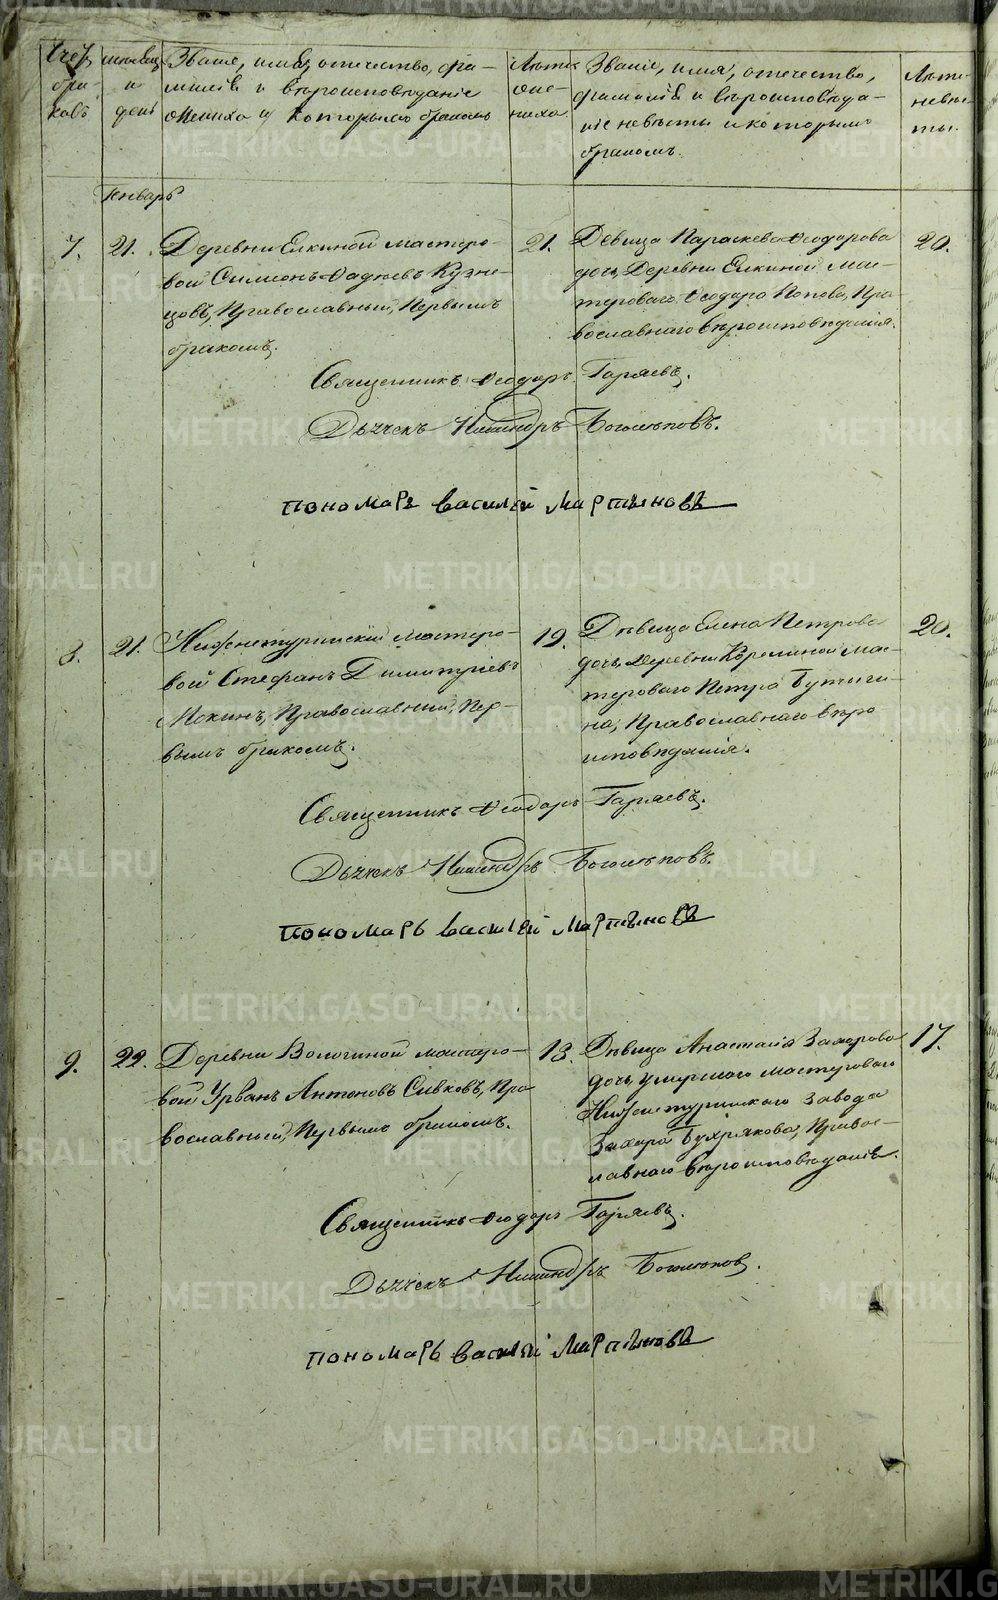 Счетъ браковъ
Месяцъ и день
Званіе, имя, отечество, фа-
милія и вѣроисповѣданіе
жениха и которымъ бракомъ
Лѣта же-
ниха.
Званіе, имя, отечество,
фамилія и вѣроисповѣда-
ніе невѣсты и которымъ
бракомъ.
Лѣта
невѣс-
ты.
Январь
7.
21.
Деревни Елкиной мастеро-
вой Симеонъ Фадѣевъ Кузне-
цовъ, Православный, Первымъ
бракомъ.
21.
Девица Параскева Ѳеодорова
дочь, Деревни Елкиной мас-
тероваго Ѳеодора Попова, Пра-
вославнаго вѣроисповѣданія.
20.
Священникъ Ѳеодоръ Гаряевъ.
Дьячекъ Никандръ Боголѣповъ.
пономарь василей Мартыновъ
8.
21.
Нижнетуринскій мастеро-
вой Стефанъ Димитріевъ
Мокинъ, Православный, Пер-
вымъ бракомъ.
19.
Дѣвица Елена Петрова
дочь, Деревни Корелиной мас-
тероваго Петра
на, Православнаго вѣро
исповѣданія.
20.
Священникъ Ѳеодоръ Гаряевъ.
Дьячекъ Никандръ Боголѣповъ.
пономарь василей мартыновъ
9.
22.
Деревни Вологиной мастеро-
вой Урванъ Антоновъ Сивковъ, Пра
вославный, Первымъ бракомъ.
18.
Дѣвица Анастасія Захарова
дочь, умершаго мастероваго
Нижнетуринскаго завода
Захара Бухрякова, Правос-
лавнаго вѣроисповѣданія.
17.
Священникъ Ѳеодоръ Гаряевъ.
Дьячекъ Никандръ Боголѣповъ.
пономарь василей Мартыновъ
METRIKI.GASO-URAL.RU